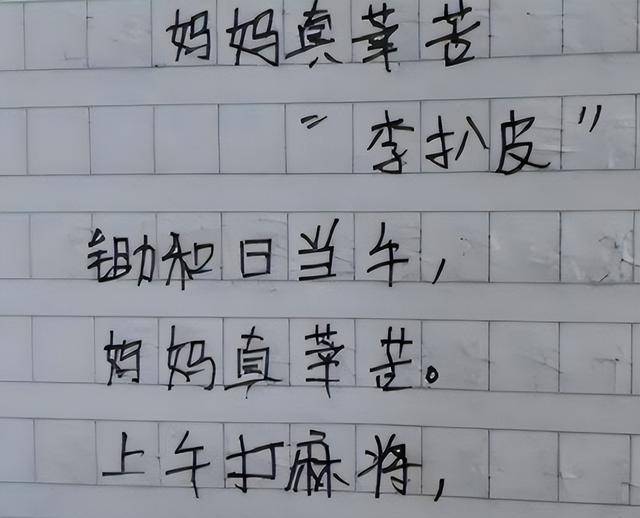 妈妈真莘苦
“李扒皮”
锄和日当午，
妈妈真莘苦。
上午打麻将，